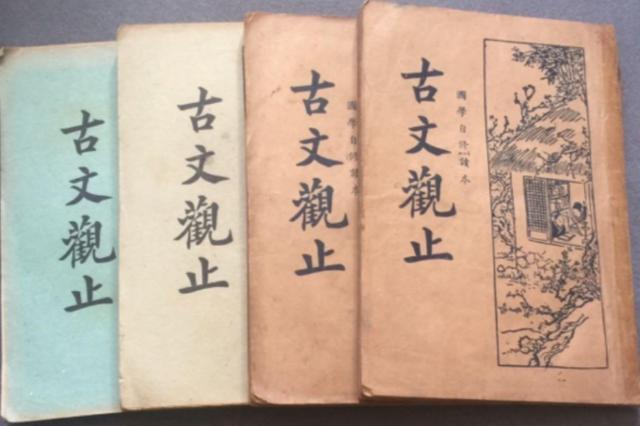 古文觀止
古文觀止
古文觀止
國學自修讀本
古文觀止
國學自修讀本